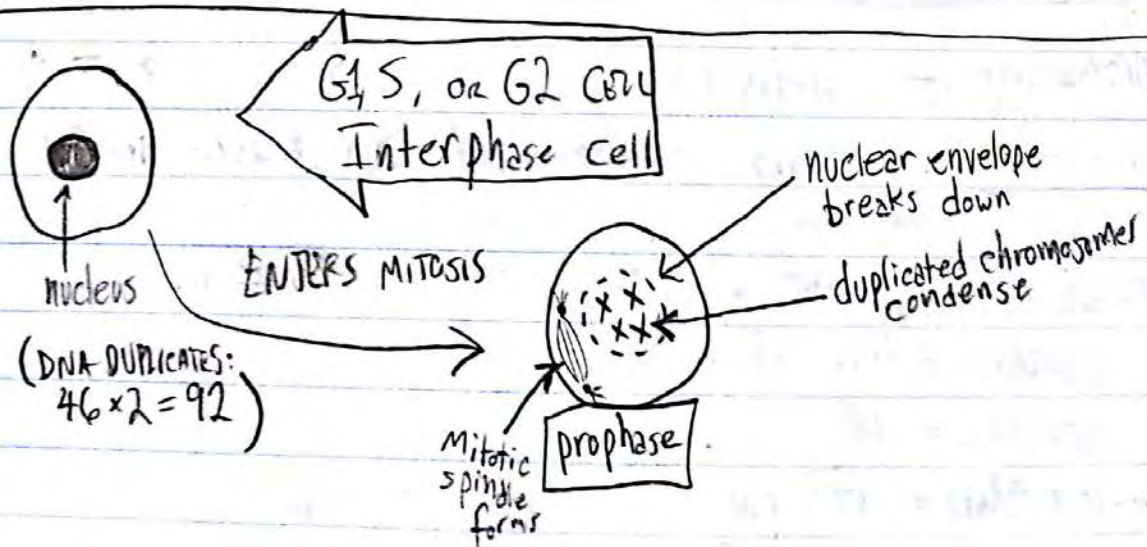 G1, S, OR G2 CELL
Interphase cell
nucleus
(DNA DUPLICATES:
46 × 2 = 92)
ENTERS MITOSIS
nuclear envelope
breaks down
duplicated chromosomes
condense
Mitotic
spindle
forms
prophase